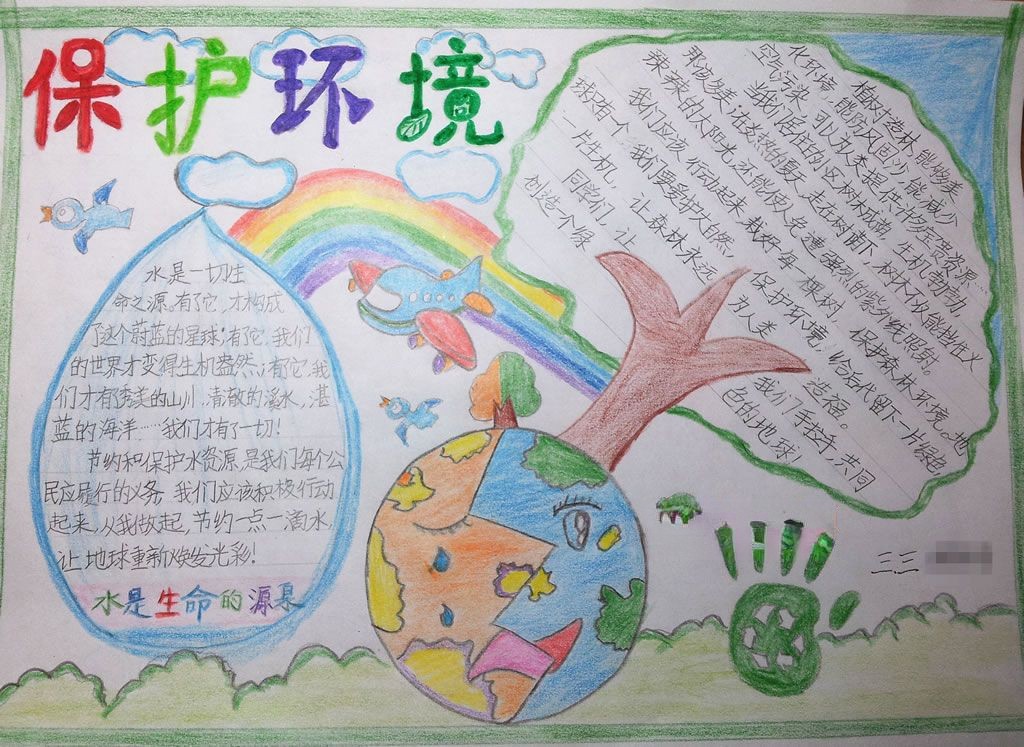 保护环境
水是一切生
命之源。有了它,才构成
了这个蔚蓝的星球;有了它,我们
的世界才变得生机盎然;有了它,我
们才有了秀美的山川,清澈的溪水,湛
蓝的海洋……我们才有了一切!
节约和保护水资源,是我们每个公
民应履行的义务,我们应该积极行动
起来,从我做起,节约一点一滴水,
让地球重新焕发光彩!
水是生命的源泉
植树造林,能够美
化环境,能防风固沙,能减少
空气污染,可以为人类提供许多宝贵资源……
当我们居住的小区树木成荫,生机勃勃,
那该多美;在炎热的夏天,走在树荫下,树木不仅能挡住火
辣辣的太阳光,还能使人免遭强烈的紫外线照射。
我们应该行动起来,栽好每一棵树,保护森林环境。地
球只有一个,我们要爱护大自然,保护环境,给后代留下一片绿色
一片生机,让森林永远为人类造福。
同学们,让我们手拉手,共同
创造一个绿色的地球!
三三